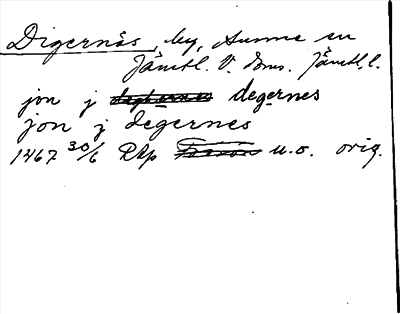 Digernäs, by, Sunne sn
Jämtl. V. doms. Jämtl. l.
jon j degernes
jon j degernes
1467 30/6 RAp u.o. orig.